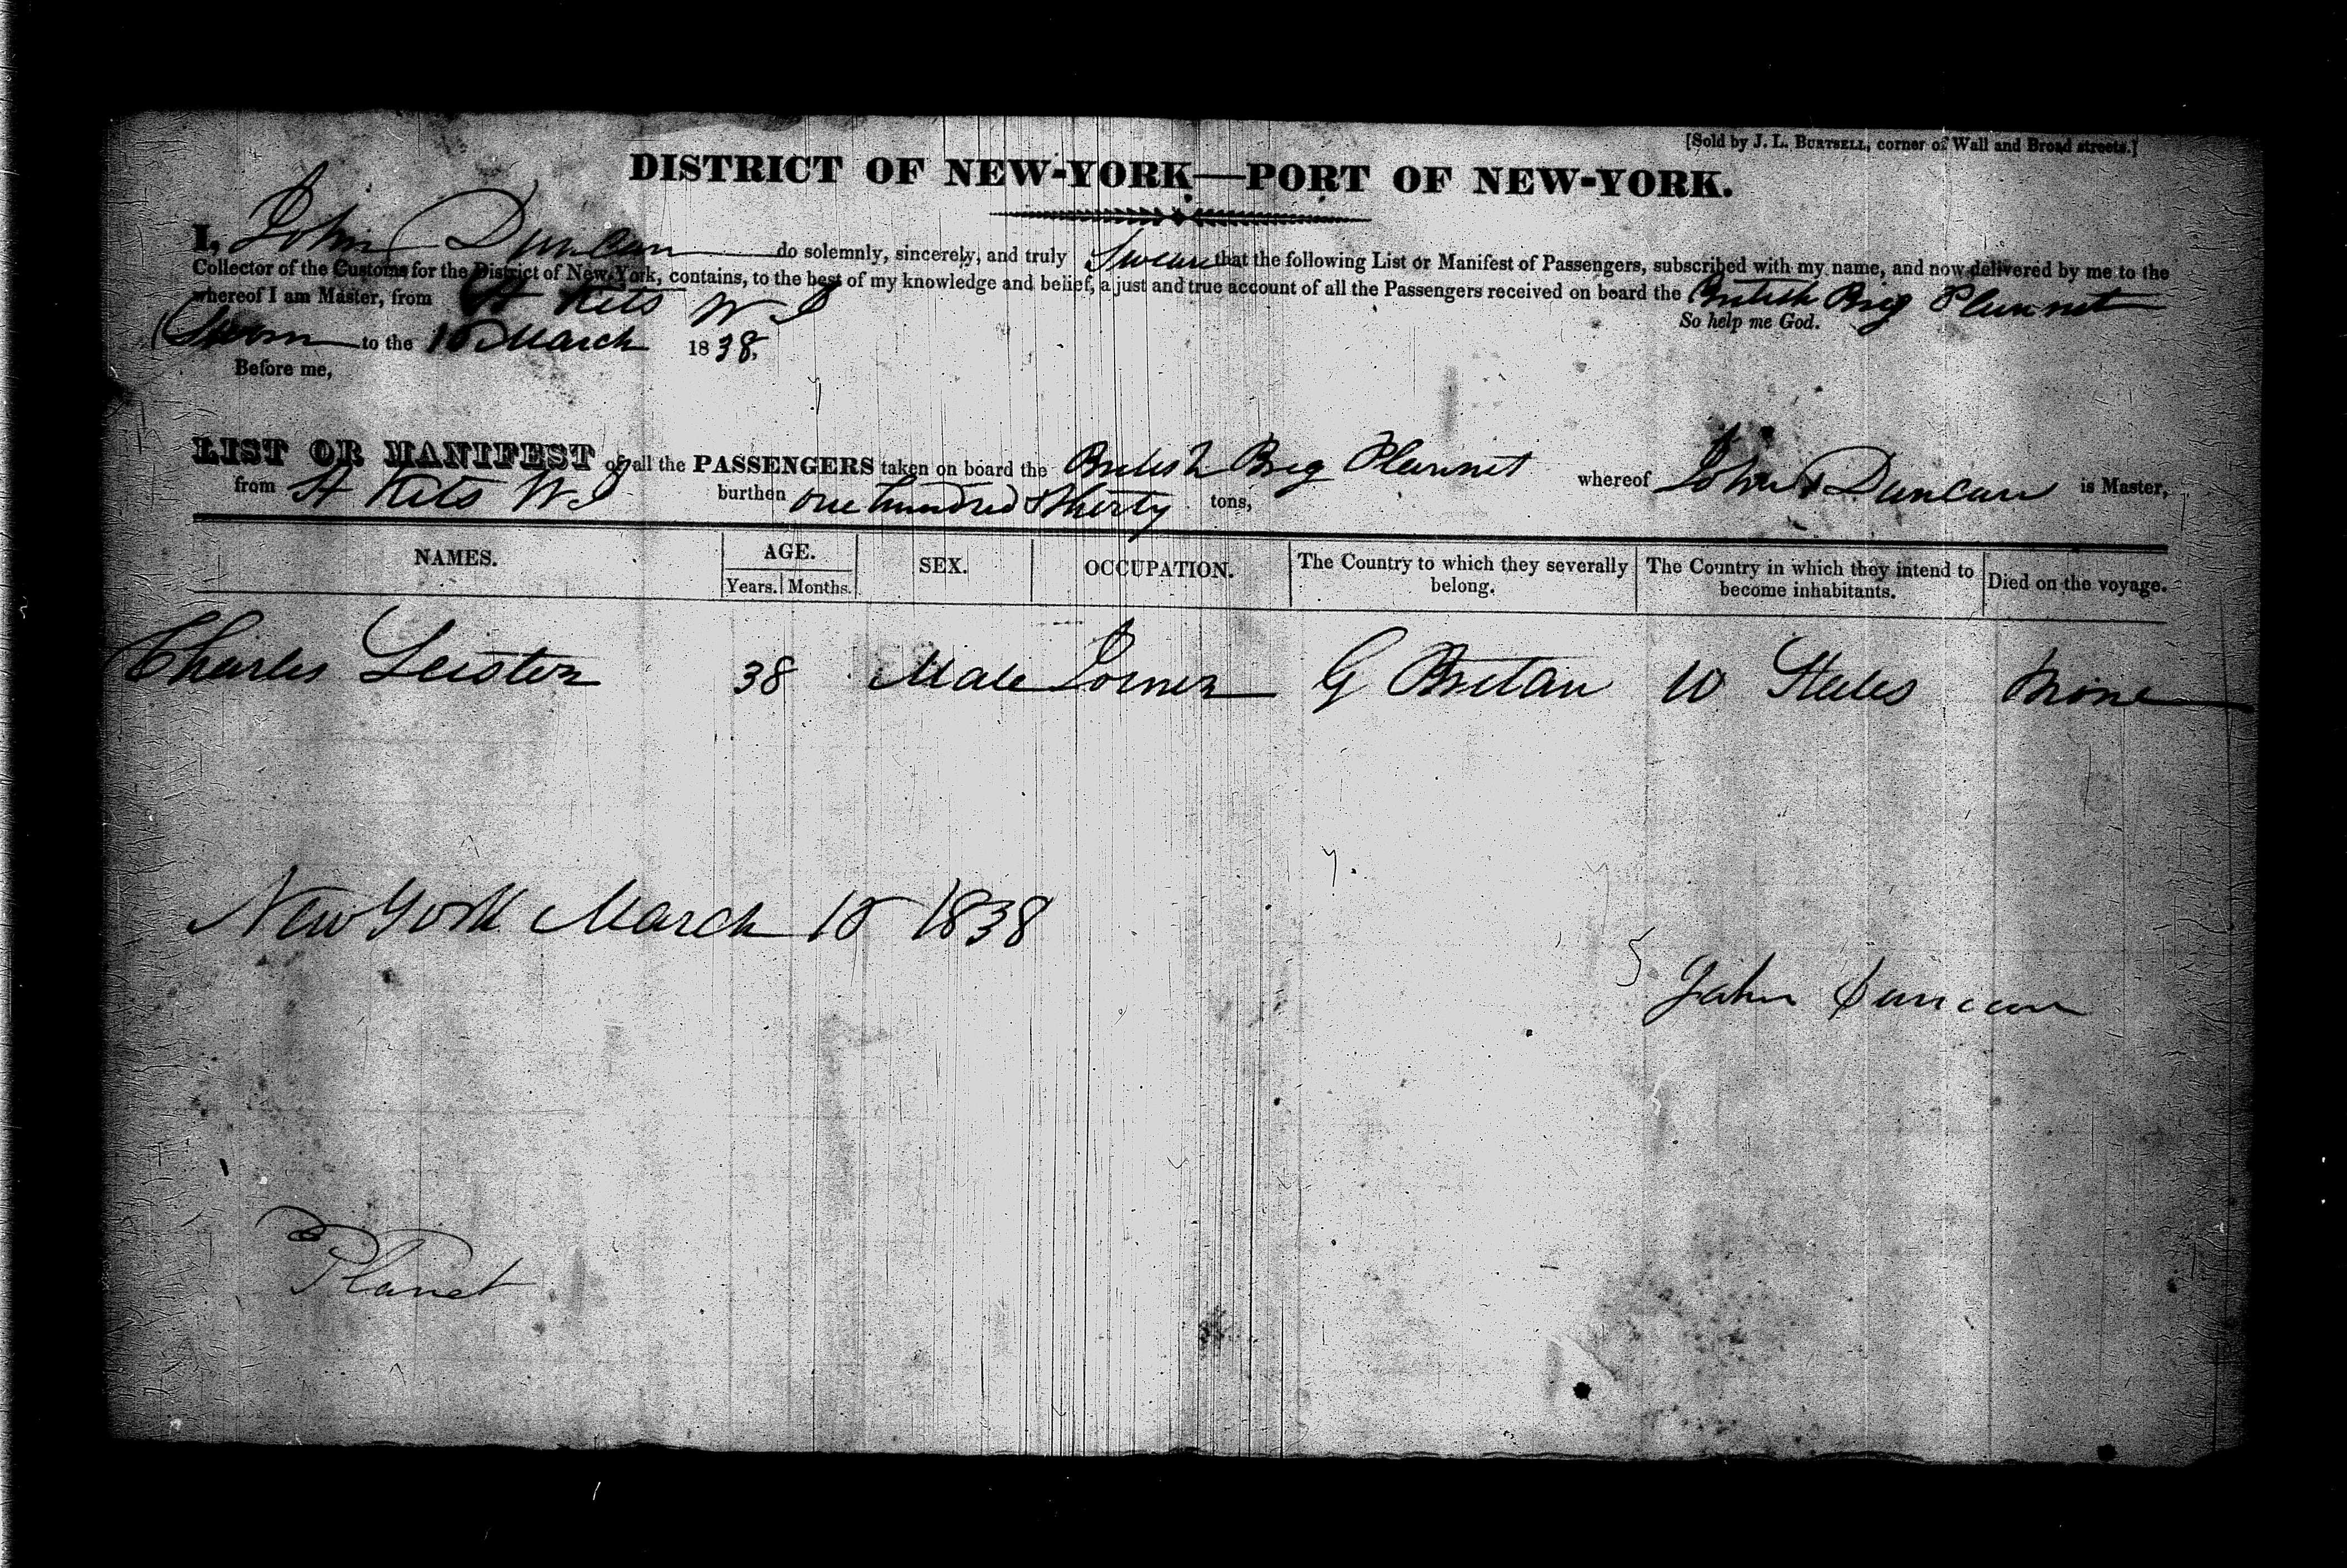 [Sold by J. L. BURTSELL, corner of Wall and Broad streets.]
DISTRICT OF NEW-YORK—PORT OF NEW-YORK.
I, John Duncan do solemnly, sincerely, and truly Swear that the following List or Manifest of Passengers, subscribed with my name, and now delivered by me to the
Collector of the Customs for the District of New-York, contains, to the best of my knowledge and belief, a just and true account of all the Passengers received on board the British Brig Plannet
whereof I am Master, from St Kits W I
So help me God.
Sworn to the 15 March 1838,
Before me,
LIST OR MANIFEST of all the PASSENGERS taken on board the British Brig Plannet whereof John Duncan is Master,
from St Kits W I burthen one hundred & therty tons,
NAMES. AGE. SEX. OCCUPATION. The Country to which they severally belong. The Country in which they intend to become inhabitants. Died on the voyage.
Years. Months.
Charles Leister 38 Male G Bretan U States None
New York March 15 1838
John Duncan
Planet